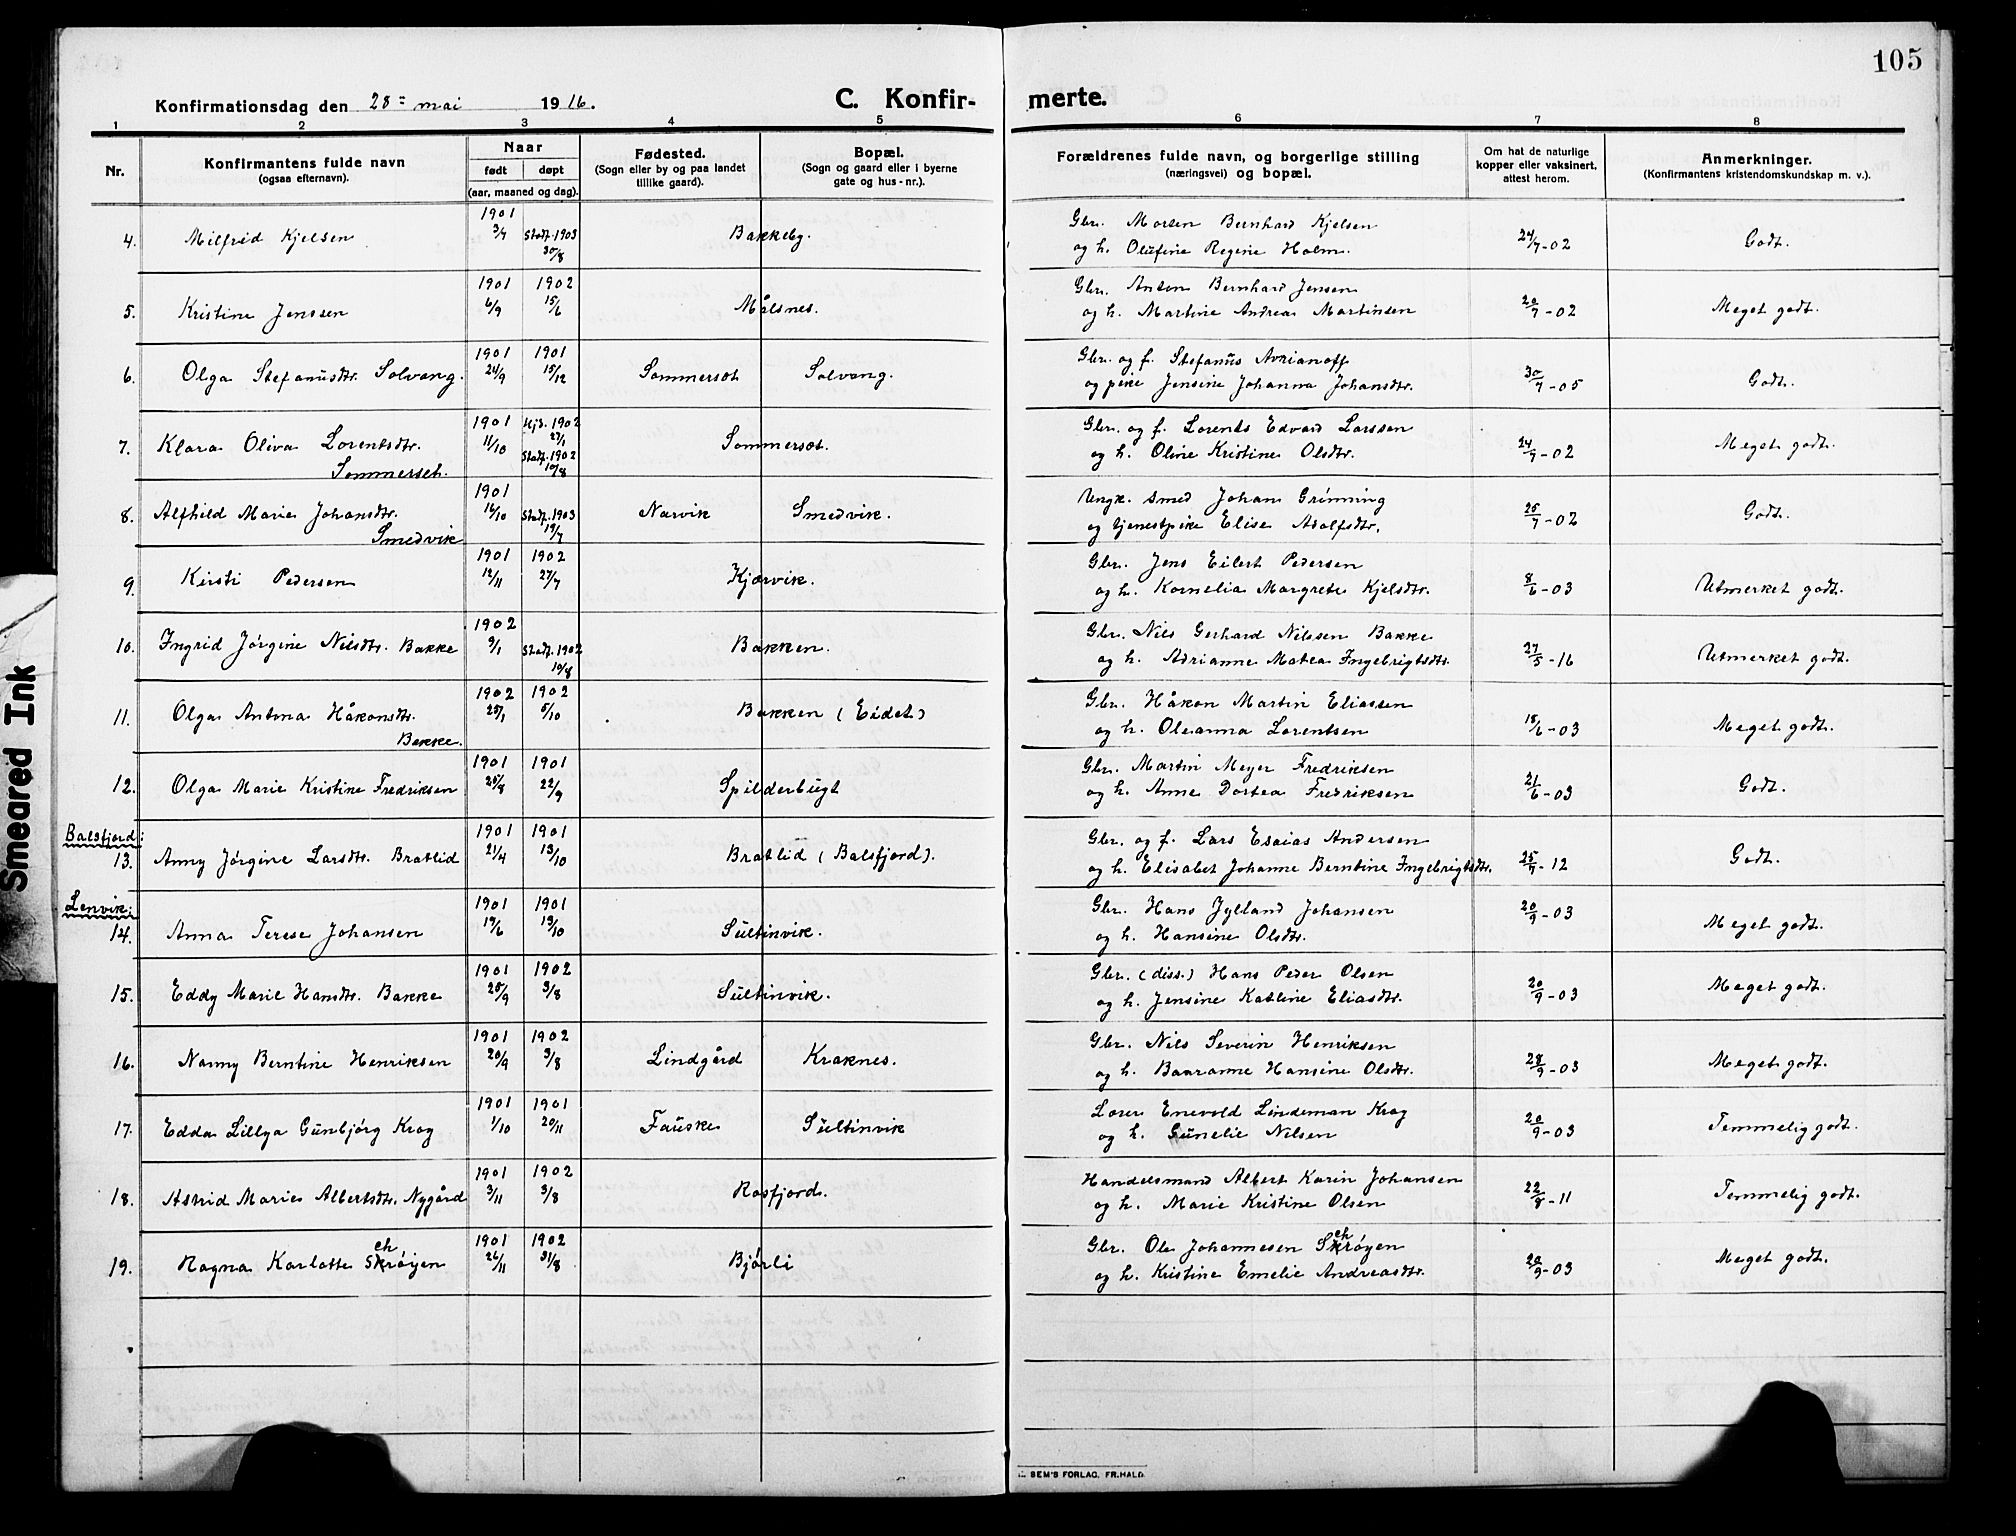 105
Konfirmationsdag den 28= mai 1916.
C. Konfir-
merte.
1 2 3 4 5 6 7 8
Nr.
Konfirmantens fulde navn
(ogsaa efternavn).
Naar
født døpt
(aar, maaned og dag).
Fødested.
(Sogn eller by og paa landet
tillike gaard).
Bopæl.
(Sogn og gaard eller i byerne
gate og hus-nr.).
Forældrenes fulde navn, og borgerlige stilling
(næringsvei) og bopæl.
Om hat de naturlige
kopper eller vaksinert,
attest herom.
Anmerkninger.
(Konfirmantens kristendomskundskap m. v.).
1901 Gbr. Morten Bernhard Kjelsen
4. Milfrid Kjelsen 3/7 Stadf. 1903 30/8 Bakkeby. og h. Olufine Regine Holm. 24/7-02 Godt.
1901 1902 Gbr. Anton Bernhard Jensen
5. Kristine Jenssen 6/9 15/6 Målsnes. og h. Martine Andrea Martinsen 20/7-02 Meget godt.
1901 1901 Gbr. og f. Stefanus Avrianoff
6. Olga Stefanusdtr. Solvang. 24/9 15/12 Sommerset Solvang. og pike Jensine Johanna Johansdtr. 30/7-05 Godt.
1901 Hjd. 1902 27/1 Gbr. og f. Lorents Edvard Larssen
7. Klara Oliva Lorentsdtr. 11/10 Stadf. 1902 10/8 Sommerset. og h. Oline Kristine Olsdtr. 24/7-02 Meget godt.
Sommerset.
1901 Ungk. smed Johan Grønning
8. Alfhild Marie Johansdtr. 16/10 Stadf. 1903 19/7 Narvik Smedvik. og tjenestpike Elise Adolfsdtr. 25/7-02 Godt.
Smedvik
1901 1902 Gbr. Jens Eilert Pedersen
9. Kirsti Pedersen 12/11 27/7 Kjærvik. og h. Kornelia Margrete Kjelsdtr. 8/6-03 Utmerket godt.
1902 Gbr. Nils Gerhard Nilssen Bakke
10. Ingrid Jørgine Nilsdtr. Bakke 9/1 Stadf. 1902 10/8 Bakken. og h. Adrianne Matea Ingebrigtsdtr. 27/5-16 Utmerket godt.
1902 1902 Gbr. Håkon Martin Eliassen
11. Olga Antona Håkonsdtr. 25/1 5/10 Bakken (Eidet) og h. Oleanna Lorentsen 18/6-03 Meget godt.
Bakke.
1901 1901 Gbr. Martin Meyer Fredriksen
12. Olga Marie Kristine Fredriksen 25/8 22/9 Spilderbugt og h. Anne Dortea Fredriksen 21/6-03 Godt.
Balsfjord: 1901 1901 Gbr. og f. Lars Esaias Andersen
13. Anny Jørgine Larsdtr. Bratlid 21/4 13/10 Bratlid (Balsfjord). og h. Elisabet Johanne Berntine Ingebrigtsdtr. 25/7-12 Godt.
Lenvik: 1901 1901 Gbr. Hans Jylland Johansen
14. Anna Terese Johansen 19/6 13/10 Sultinvik. og h. Hansine Olsdtr. 20/9-03 Meget godt.
1901 1902 Gbr. (diss.) Hans Peder Olsen
15. Eddy Marie Hansdtr. Bakke 25/9 3/8 Sultinvik. og h. Jensine Katline Eliasdtr. 20/9-03 Meget godt.
1901 1902 Gbr. Nils Severin Henriksen
16. Nanny Berntine Henriksen 20/9 3/8 Lindgård Kraknes. og h. Baaranne Hansine Olsdtr. 28/9-03 Meget godt.
1901 1901 Lærer Enevold Lindeman Krog
17. Edda Lillya Gunbjørg Krog 1/10 20/11 Fauske Sultinvik og h. Gunelie Nilsen 20/9-03 Temmelig godt.
1901 1902 Handelsmand Albert Karin Johansen
18. Astrid Marie Albertsdtr. Nygård 3/11 3/8 Rosfjord. og h. Marie Kristine Olsen 22/8-11 Temmelig godt.
1901 1902 Gbr. Ole Johannesen Schrøyen
19. Ragna Karlotte Schrøyen 26/11 31/8 Bjørli og h. Kristine Emelie Andreasdtr. 20/9-03 Meget godt.
SEM'S FORLAG, FR.HALD.
Smeared Ink